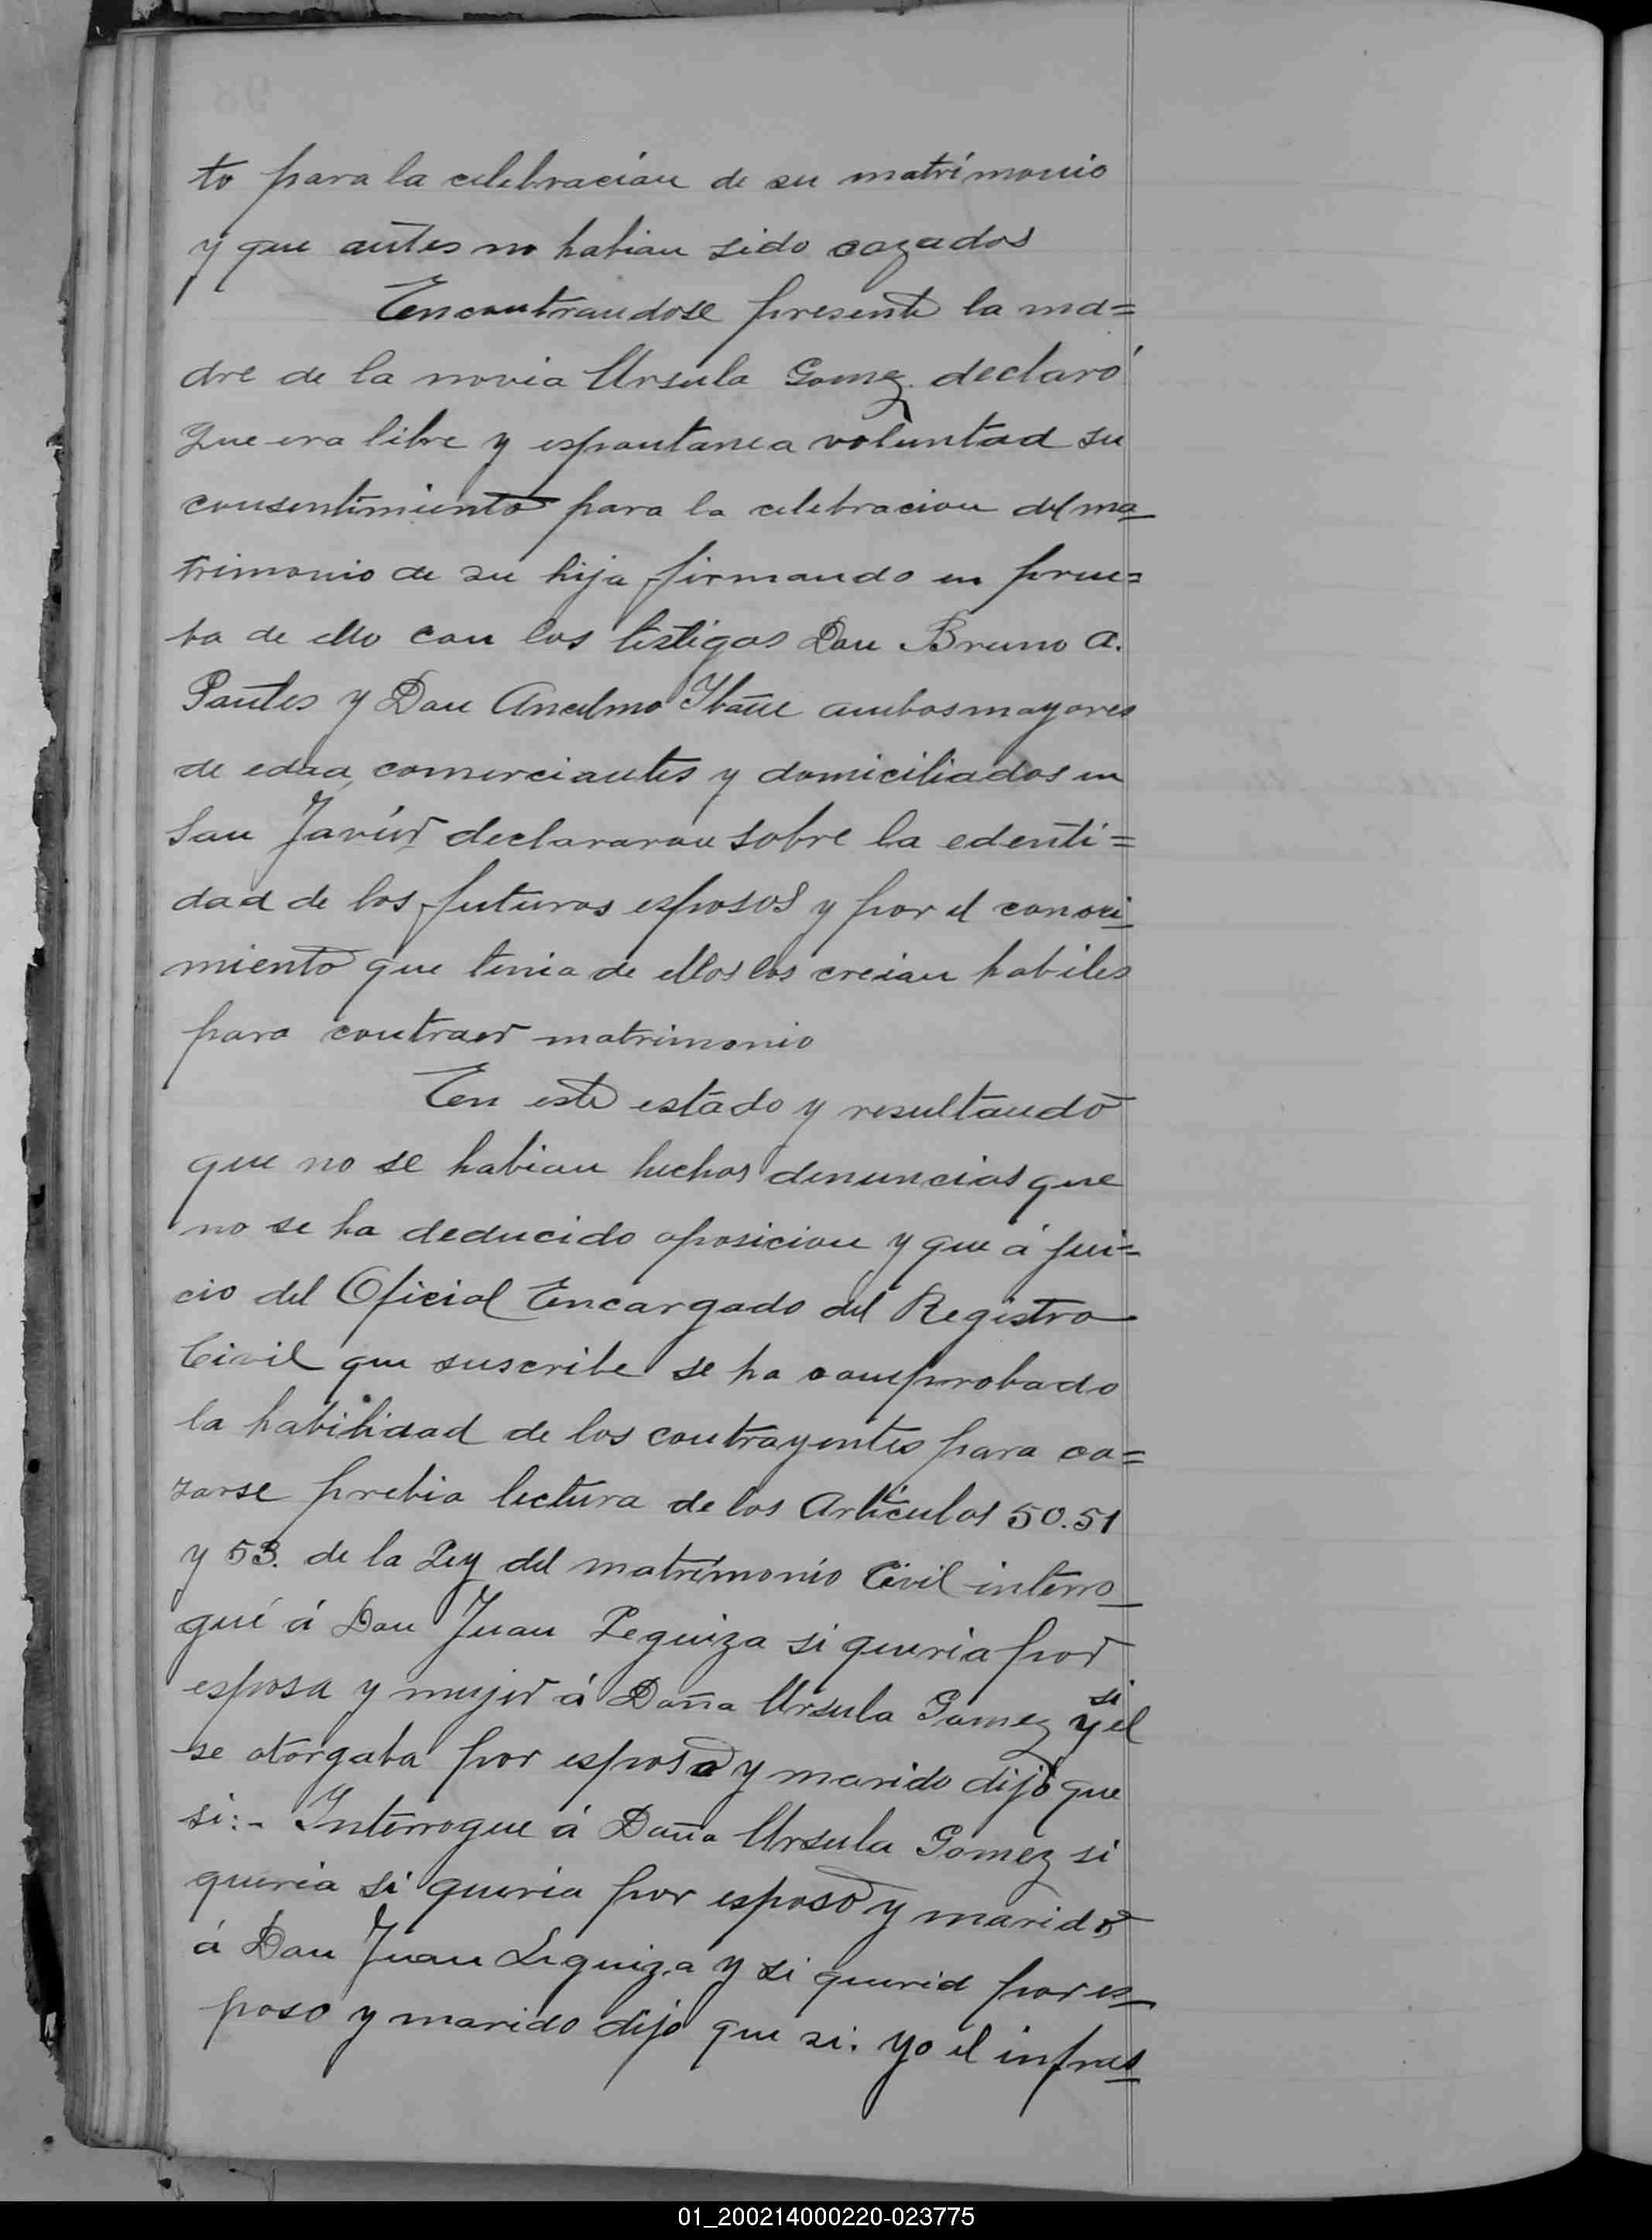 to para la celebración de su matrimonio
y que antes no habian sido cazados
Encontrandose presente la ma=
dre de la novia Ursula Gomez declaró
que era libre y espontanea voluntad su
consentimiento para la celebracion del ma-
trimonio de su hija firmando en prue=
ba de ello con los testigos Don Bruno A.
Pontes y Don Anselmo Ybañe ambos mayores
de edad, comerciantes y domiciliados en
San Javier declararon sobre la edenti=
dad de los futuros esposos y por el conoci-
miento que tenia de ellos los creian habiles
para contraer matrimonio
En este estado y resultando
que no se habian hechos denuncias que
no se ha deducido oposicion y que á jui=
cio del Oficial Encargado del Registro
Civil que suscribe se ha comprobado
la habilidad de los contrayentes para ca=
zarse prebia lectura de los Artículos 50.51
y 53. de la Ley del matrimonio Civil interro-
gué á Don Juan Leguiza si queria por
esposa y mujer á Doña Ursula Gomez y si el
se otorgaba por esposo y marido dijó que
si:- Interrogue á Doña Ursula Gomez si
queria si queria por esposo y marido
á Don Juan Leguiza y si querid por es-
poso y marido dijo que si. Yo el infras-
01_200214000220-023775